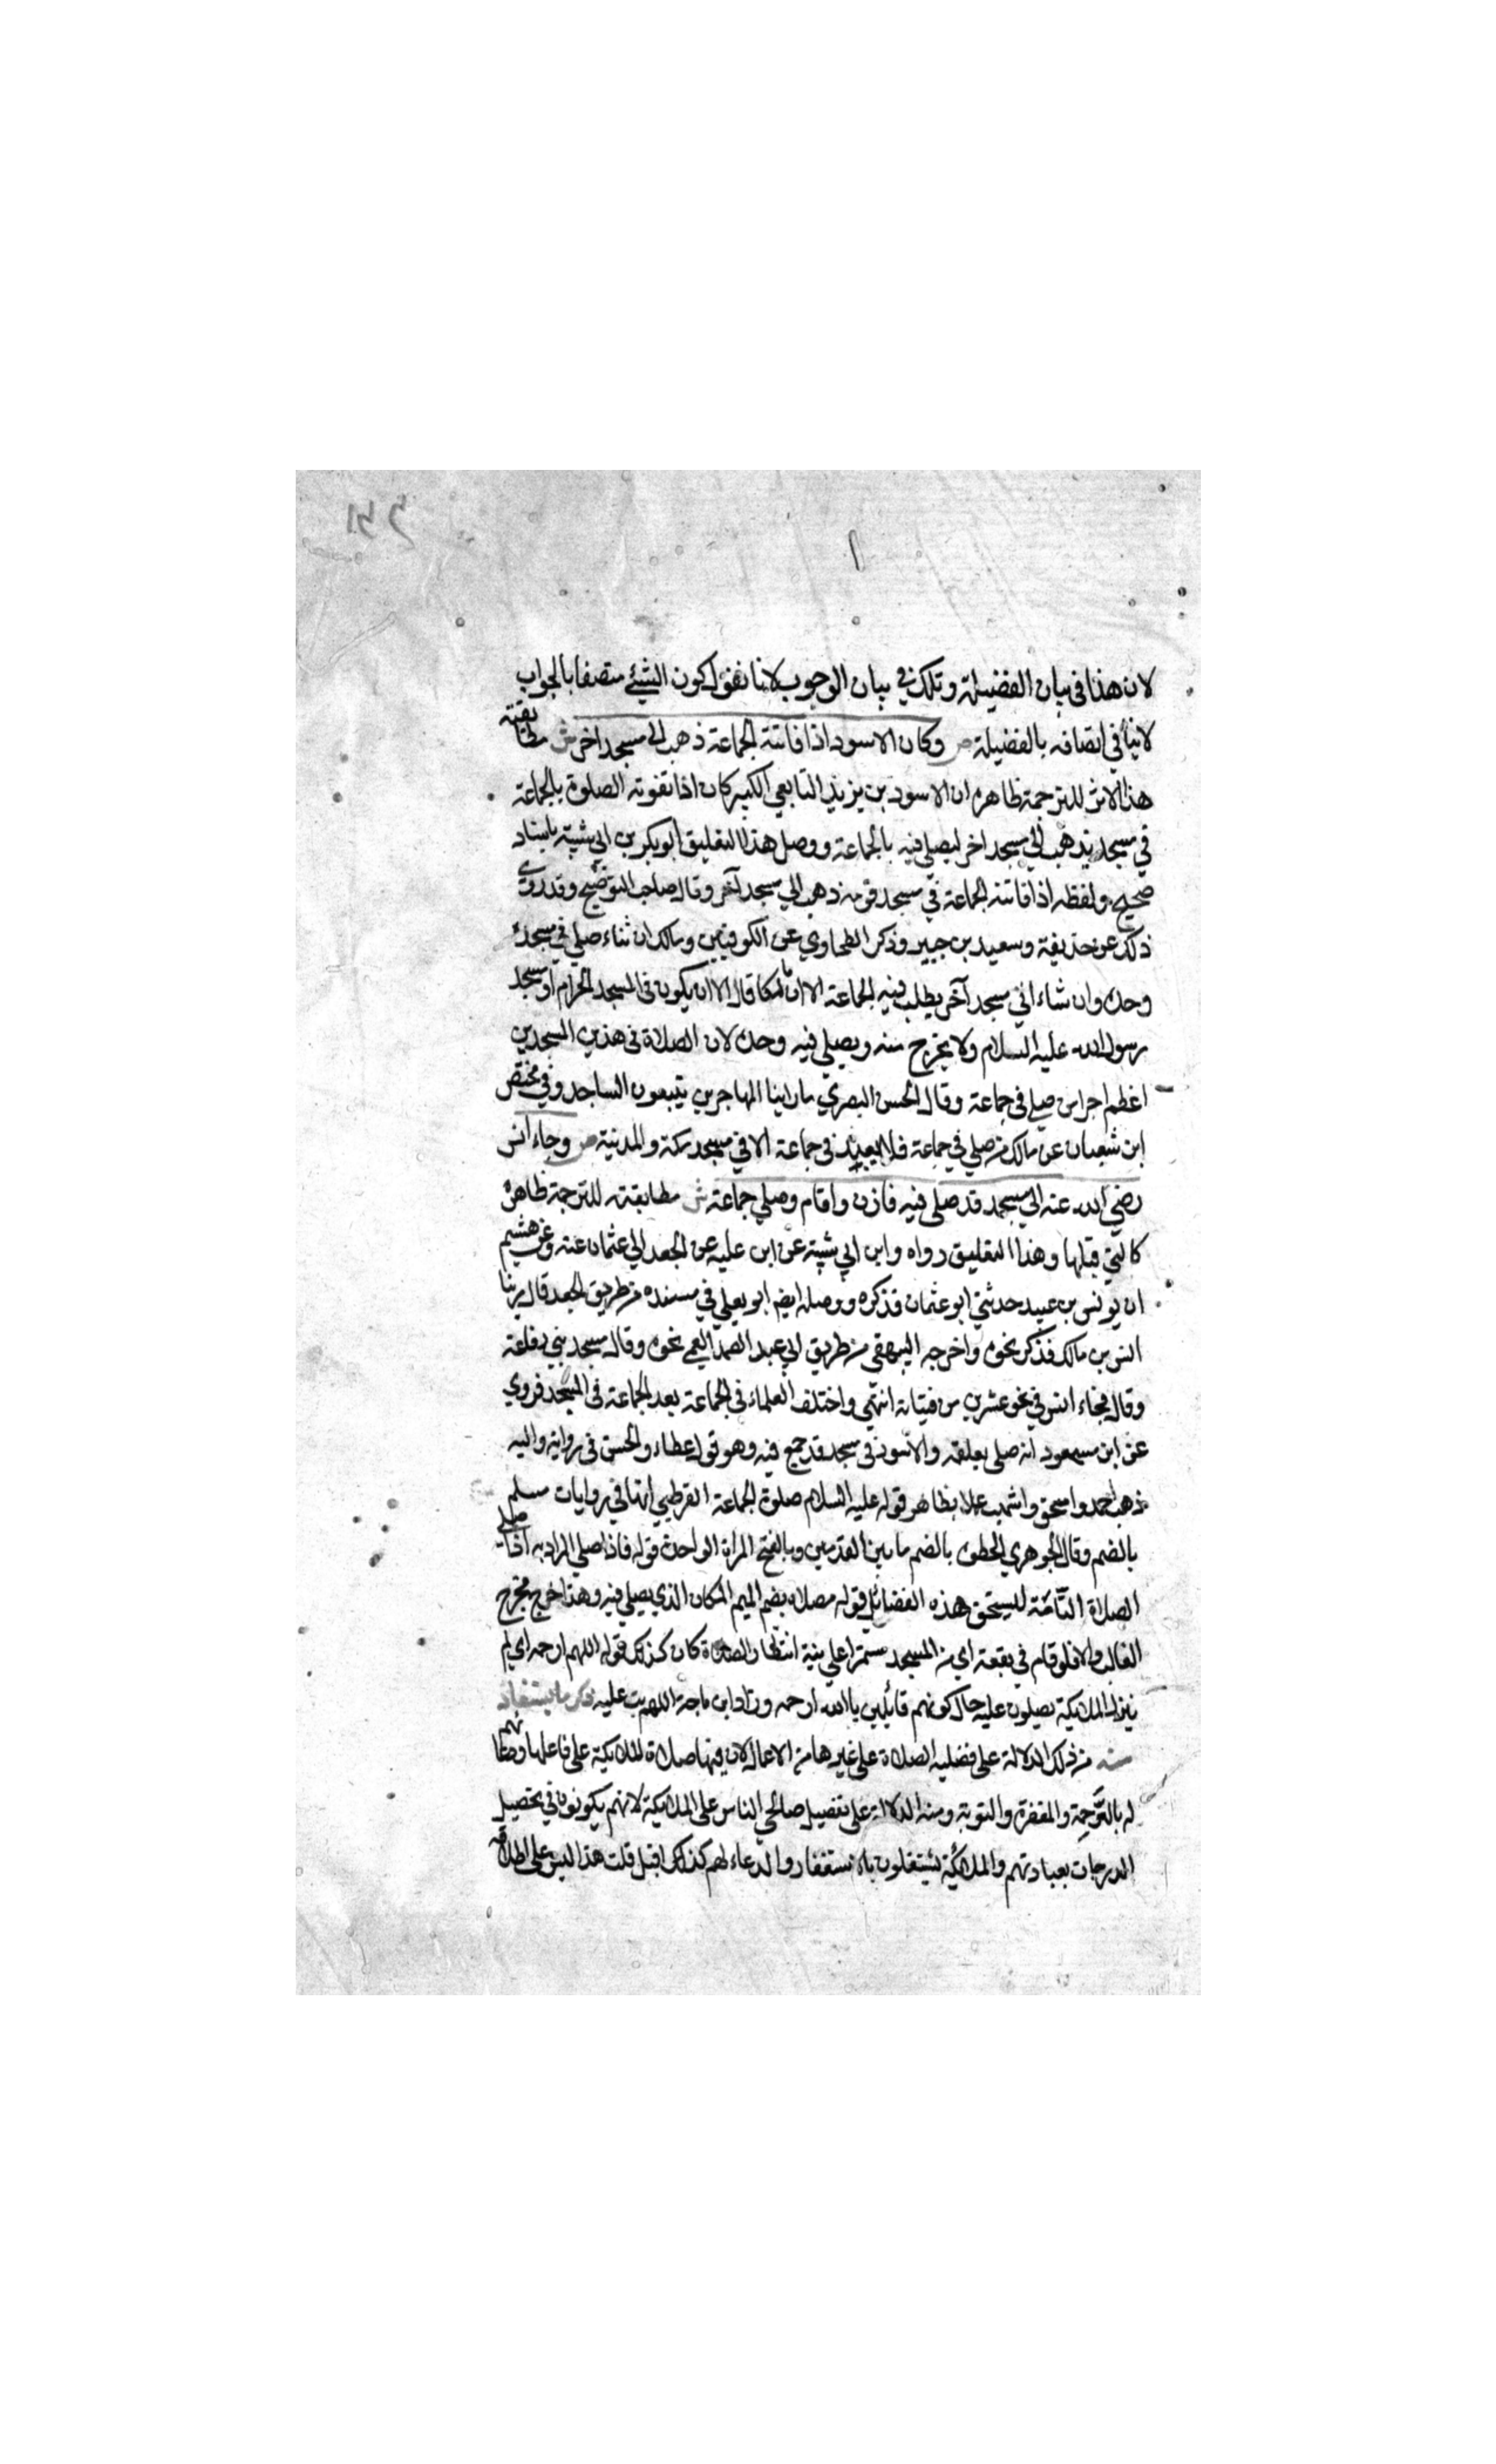 لان هذا في بيان الفضيلة وتلك في بيان الوجوب لانا نقول كون الشيئ متصفا بالجواب
لاينافي اتصافه بالفضيلة ص وكان الاسود اذا فاتته الجماعة ذهب الى مسجد اخر ش مطابقة
هذا الاثر للترجمة ظاهره ان الاسود بن يزيد التابعي الكبير كان اذا تفوته الصلوة بالجماعة
في مسجد يذهب الي مسجد اخر ليصلي فيه بالجماعة ووصل هذا التعليق ابو بكر بن ابي شيبة باسناد
صحيح ولفظه اذا فاتته الجماعة في مسجد قومه ذهب الي مسجد آخر وقال صاحب التوضيح وقد روي
ذلك عن حذيفة وسعيد بن جبير وذكر الطحاوي عن الكوفيين ومالك ان شاء صلي في مسجده
وحده وان شاء اتي مسجد آخر يطلب فيه الجماعة الا ان مالكا قال الا ان يكون في المسجد الحرام او مسجد
رسول الله عليه السلام ولا يخرج منه ويصلي فيه وحده لان الصلاة في هذين المسجدين
اعظم اجر امن صلي في جماعة وقال الحسن البصري ما راينا المهاجرين يتبعون المساجد وفي مختصر
ابن شعبان عن مالك من صلي في جماعة فلا يعيد في جماعة الا في مسجد مكة والمدينة ص وجاء انس
رضي الله عنه الي مسجد قد صلى فيه فاذن واقام وصلي جماعة ش مطابقته للترجمة ظاهرة
كالتي قبلها وهذا التعليق رواه وابن ابي شيبة عن ابن علية عن الجعد ابي عثمان عنه وعن هشيم
ان يونس بن عبيد حدثني ابو عثمان فذكره ووصله ايضم ابو يعلي في مسنده من طريق الجعد قال مر بنا
انس بن مالك فذكر نحوه واخرجه البيهقي من طريق ابي عبد الصمد العمي نحوه وقال مسجد بني رفاعة
وقال فجاء انس في نحو عشرين من فتيانه انتهى واختلف العلماء في الجماعة بعد الجماعة في المسجد فروي
عن ابن مسعود انه صلى بعلقمه والاسود في مسجد قد جمع فيه وهو قول عطاء والحسن في رواية واليه
ذهب احمد واسحق واشهب عملا بظاهر قوله عليه السلام صلوة الجماعة القرطبي انها في روايات مسلم
بالضم وقال الجوهري الخطوة بالضم ما بين القدمين وبالفتح المراة الواحدة قوله فاذا صلي المراد به اذا صلي
الصلاة التامة ليستحق هذه الفضائل قوله مصلاه بضم الميم المكان الذي يصلي فيه وهذا خرج مخرج
الغالب والا فلو قام في بقعة اي من المسجد مستمرا علي نية انتظار الصلاة كان كذلك قوله اللهم ارحمه اي لم
ينزل الملائكة يصلون عليه حال كونهم قائلين يا الله ارحمه وزاد ابن ماجة اللهم تب عليه ذكر ما يستفاد
منه من ذلك الدلالة على فضلية الصلاة على غيرها من الاعمال لان فيها صلاة الملائكة على فاعلها ودعائهم
له بالترحمة والمغفرة والتوبة ومنه الدلالة على تفضيل صالحي الناس على الملائكة لانهم يكونون في تحصيل
الدرجات بعبادتهم والملائكة يشتغلون بالاستغفار والدعاء لهم كذلك اقيل قلت هذا ليس على اطلاقه